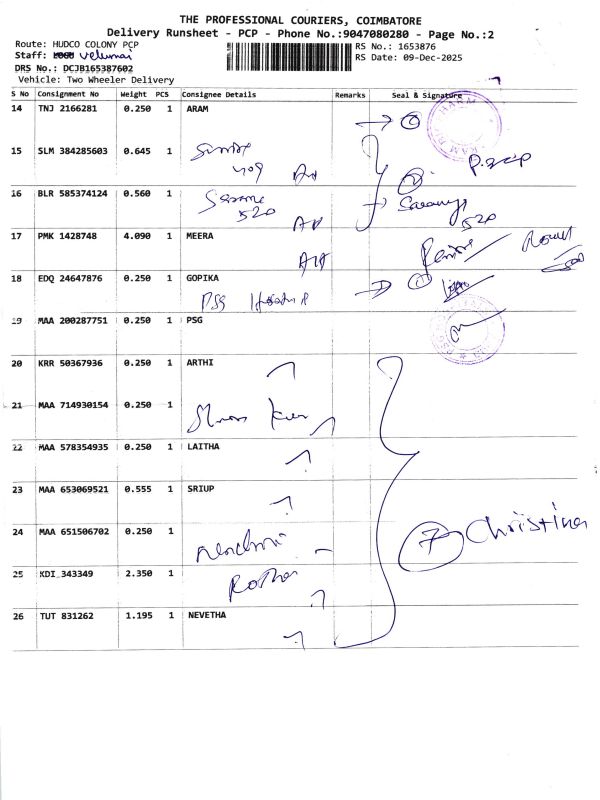 THE PROFESSIONAL COURIERS, COIMBATORE
Delivery Runsheet - PCP - Phone No.:9047080280 - Page No.:2
Route: HUDCO COLONY PCP
RS No.: 1653876
Staff: velumai
RS Date: 09-Dec-2025
DRS No.: DCJB165387602
Vehicle: Two Wheeler Delivery
S No Consignment No Weight PCS Consignee Details Remarks Seal & Signature
14 TNJ 2166281 0.250 1 ARAM
15 SLM 384285603 0.645 1
409
16 BLR 585374124 0.560 1
520
Saranya
520
17 PMK 1428748 4.090 1 MEERA
18 EDQ 24647876 0.250 1 GOPIKA
PSG
19 MAA 200287751 0.250 1 PSG
20 KRR 50367936 0.250 1 ARTHI
21 MAA 714930154 0.250 1
22 MAA 578354935 0.250 1 LAITHA
23 MAA 653069521 0.555 1 SRIUP
24 MAA 651506702 0.250 1
7 Christina
25 KDI 343349 2.350 1
26 TUT 831262 1.195 1 NEVETHA